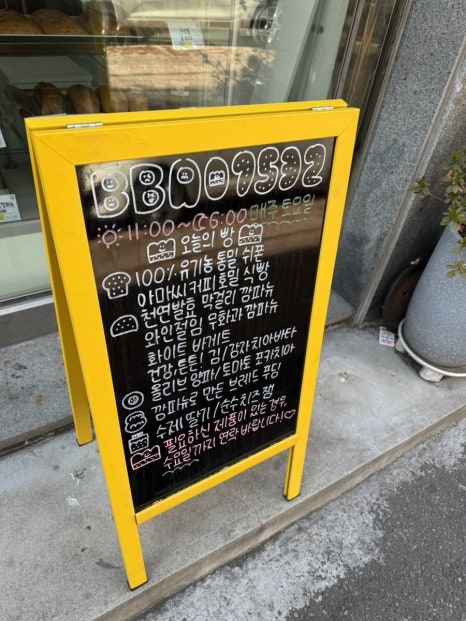 BBANG1532
11:00~6:00 매주 토요일
오늘의 빵
100% 유기농통밀 쉬폰
야마씨 커피 호밀 식빵
천연발효 막걸리 깜파뉴
와인절임 무화과 깜파뉴
화이트 바게트
건강, 튼튼! 김/감자치아바타
올리브 양파/토마토 포카치아
깜파뉴로 만든 브레드 푸딩
수제 딸기/순수치즈 잼
필요하신 제품이 있는 경우,
수요일까지 연락바랍니다!♡